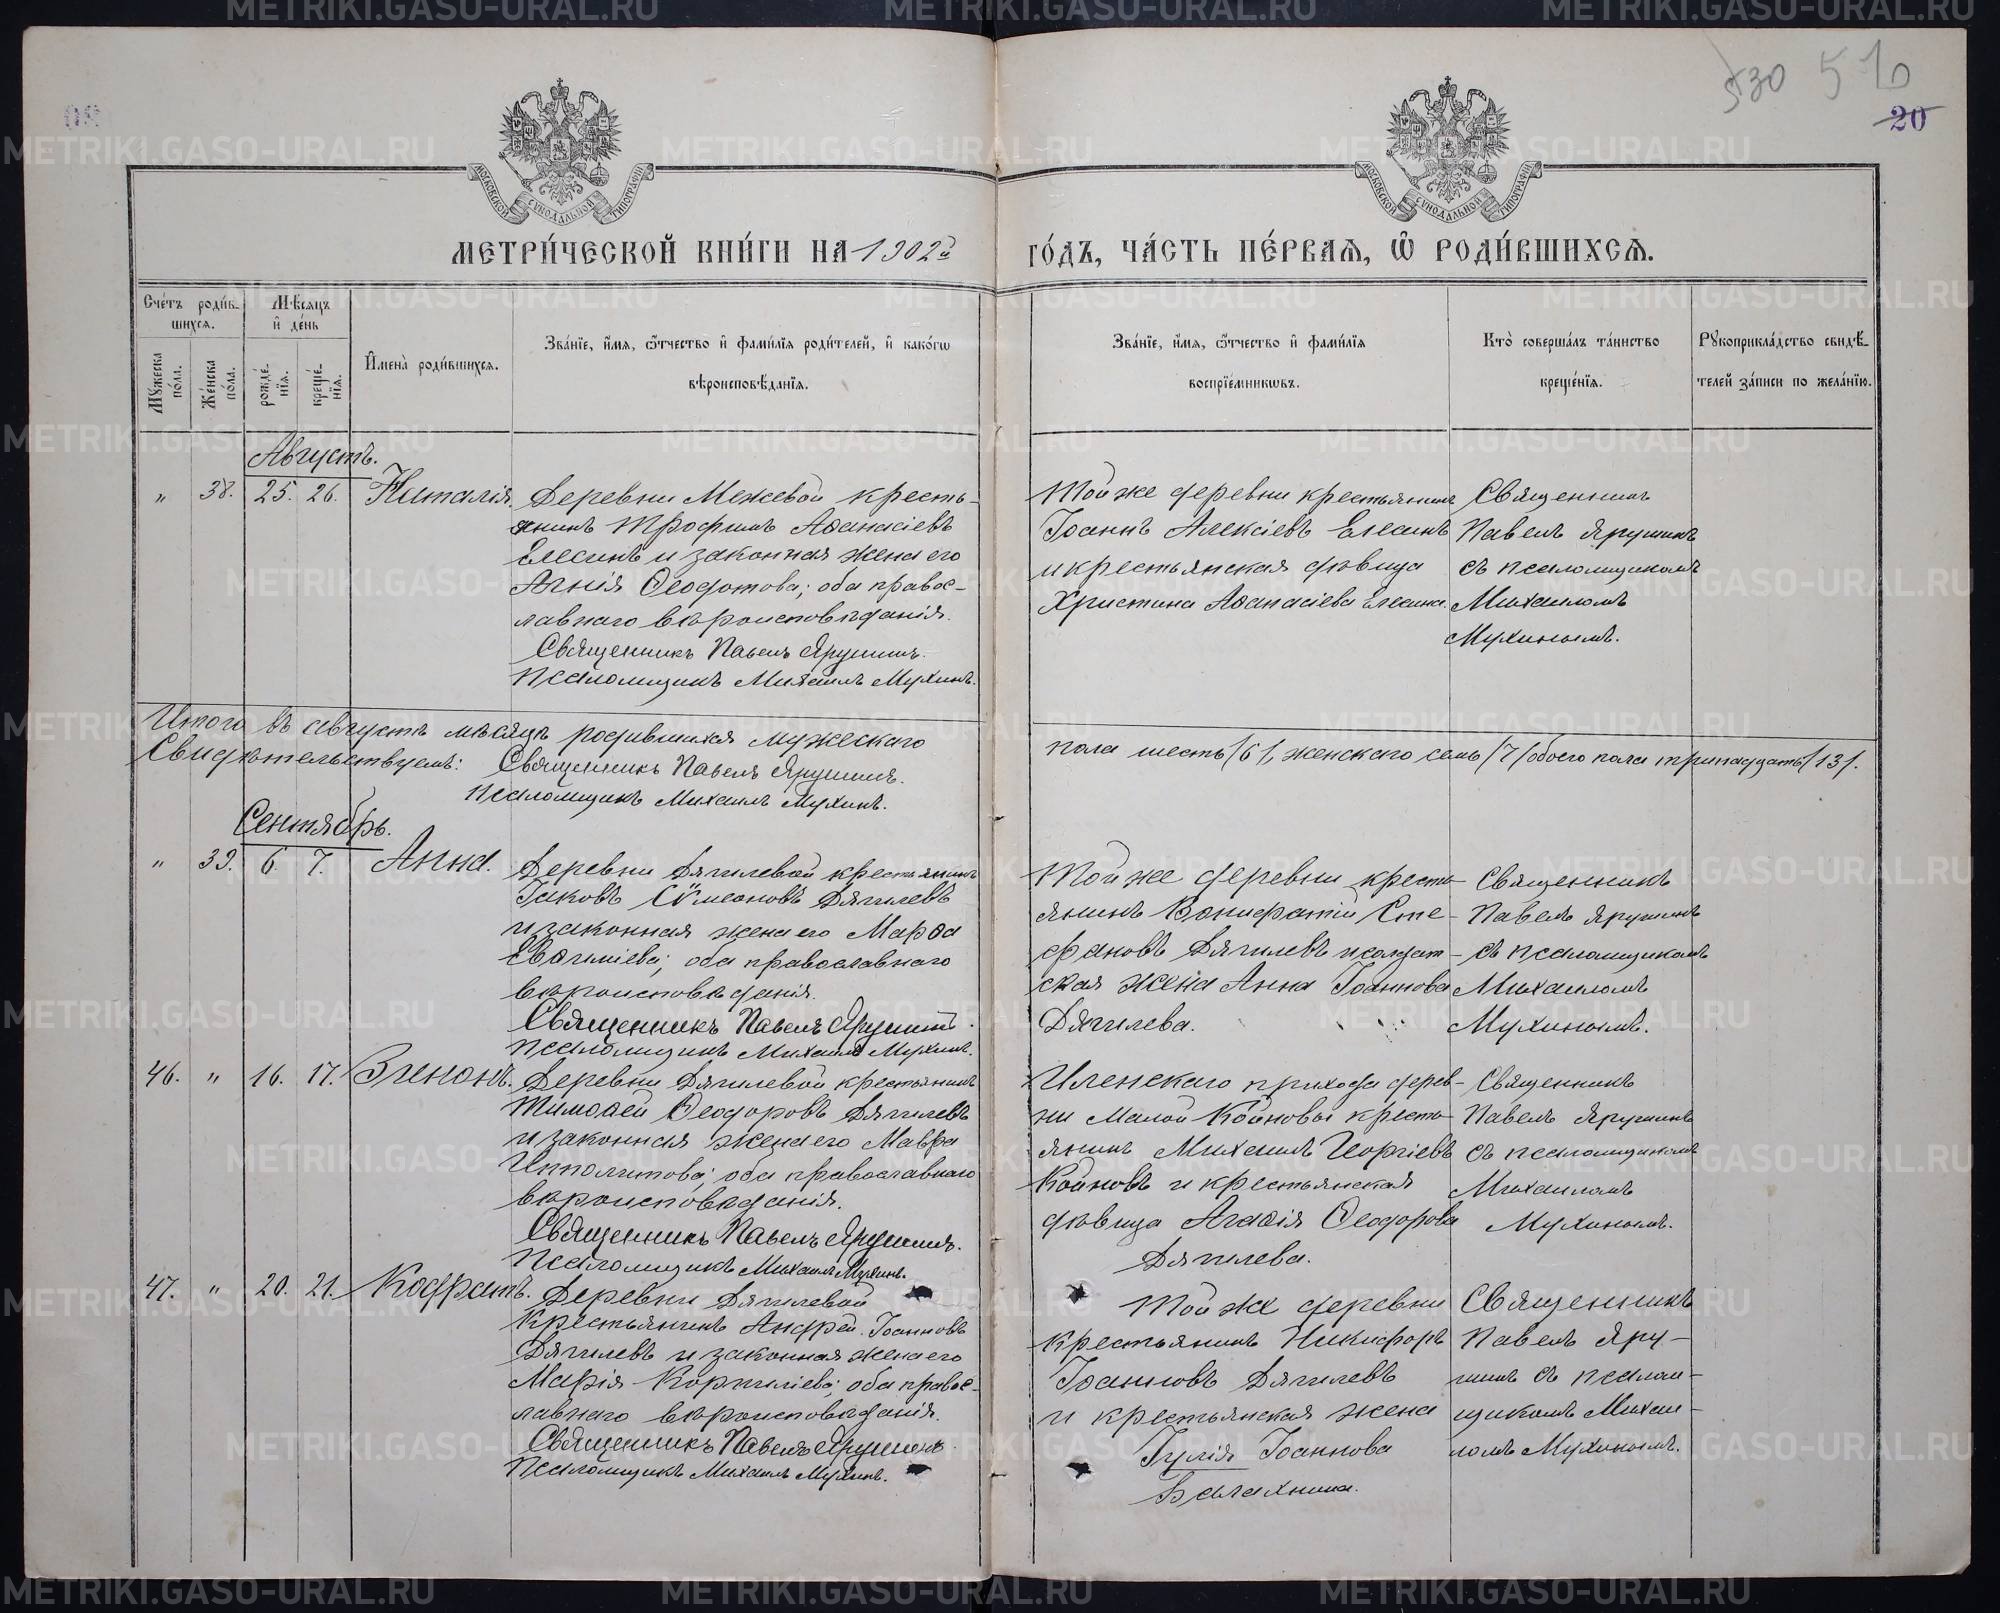 530 510
20
МОСКОВСКОЙ СѴНОДАЛЬНОЙ ТИПОГРАФІИ
МОСКОВСКОЙ СѴНОДАЛЬНОЙ ТИПОГРАФІИ
МЕТРИ́ЧЕСКОЙ КНИ́ГИ НА 1902й ГО́ДЪ, ЧА́СТЬ ПЕ́РВАѦ, Ѡ҆ РОДИ́ВШИХСѦ.
Сче́тъ роди́вшихсѧ.
Мꙋ́жеска по́ла.
Же́нска по́ла.
Мѣ́сѧцъ и҆ де́нь
рожде́нїѧ.
креще́нїѧ.
И҆мена̀ роди́вшихсѧ.
Зва́нїе, и҆́мѧ, ѻ҆́тчество и҆ фами́лїѧ роди́телей, и҆ како́гѡ
вѣроисповѣ́данїѧ.
Зва́нїе, и҆́мѧ, ѻ҆́тчество и҆ фами́лїѧ
воспрїе́мникѡвъ.
Кто̀ соверша́лъ та́инство
креще́нїѧ.
Рꙋкоприкла́дство свидѣ́-
телей за́писи по жела́нїю.
Августъ.
" 38. 25. 26. Наталія.
Деревни Межевой кресть-
янинъ Трофимъ Аѳанасіевъ
Елесинъ и законная жена его
Агнія Ѳеодотова; оба правос-
лавнаго вѣроисповѣданія.
Священникъ Павелъ Ярушинъ.
Псаломщикъ Михаилъ Мухинъ.
Той же деревни крестьянинъ
Іоаннъ Алексіевъ Елесинъ
и крестьянская дѣвица
Христина Аѳанасіева Елесина.
Священникъ
Павелъ Ярушинъ
съ псаломщикомъ
Михаиломъ
Мухинымъ.
Итого въ августѣ мѣсяцѣ родившихся мужескаго
пола шесть /6/, женскаго семь /7/ обоего пола тринадцать /13/.
Свидѣтельствуемъ: Священникъ Павелъ Ярушинъ.
Псаломщикъ Михаилъ Мухинъ.
Сентябрь.
" 39. 6. 7. Анна.
Деревни Дягилевой крестьянинъ
Іаковъ Сѵмеоновъ Дягилевъ
и законная жена его Марѳа
Евѳиміева; оба православнаго
вѣроисповѣданія.
Священникъ Павелъ Ярушинъ.
Псаломщикъ Михаилъ Мухинъ.
Той же деревни кресть-
янинъ Вонифатій Сте-
фановъ Дягилевъ и солдат-
ская жена Анна Іоаннова
Дягилева.
Священникъ
Павелъ Ярушинъ
съ псаломщикомъ
Михаиломъ
Мухинымъ.
46. " 16. 17. Зинонъ.
Деревни Дягилевой крестьянинъ
Тимоѳей Ѳеодоровъ Дягилевъ
и законная жена его Мавра
Ипполитова; оба православнаго
вѣроисповѣданія.
Священникъ Павелъ Ярушинъ.
Псаломщикъ Михаилъ Мухинъ.
Иленскаго прихода дерев-
ни Малой Койновы кресть-
янинъ Михаилъ Георгіевъ
Койновъ и крестьянская
дѣвица Агаѳія Ѳеодорова
Дягилева.
Священникъ
Павелъ Ярушинъ
съ псаломщикомъ
Михаиломъ
Мухинымъ.
47. " 20. 21. Кодратъ.
Деревни Дягилевой
Крестьянинъ Андрей Іоанновъ
Дягилевъ и законная жена его
Марія Корниліева; оба правос-
лавнаго вѣроисповѣданія.
Священникъ Павелъ Ярушинъ.
Псаломщикъ Михаилъ Мухинъ.
Той же деревни
крестьянинъ Никифоръ
Іоанновъ Дягилевъ
и крестьянская жена
Іулія Іоаннова
Балахнина.
Священникъ
Павелъ Яру-
шинъ съ псалом-
щикомъ Михаи-
ломъ Мухинымъ.
METRIKI.GASO-URAL.RU